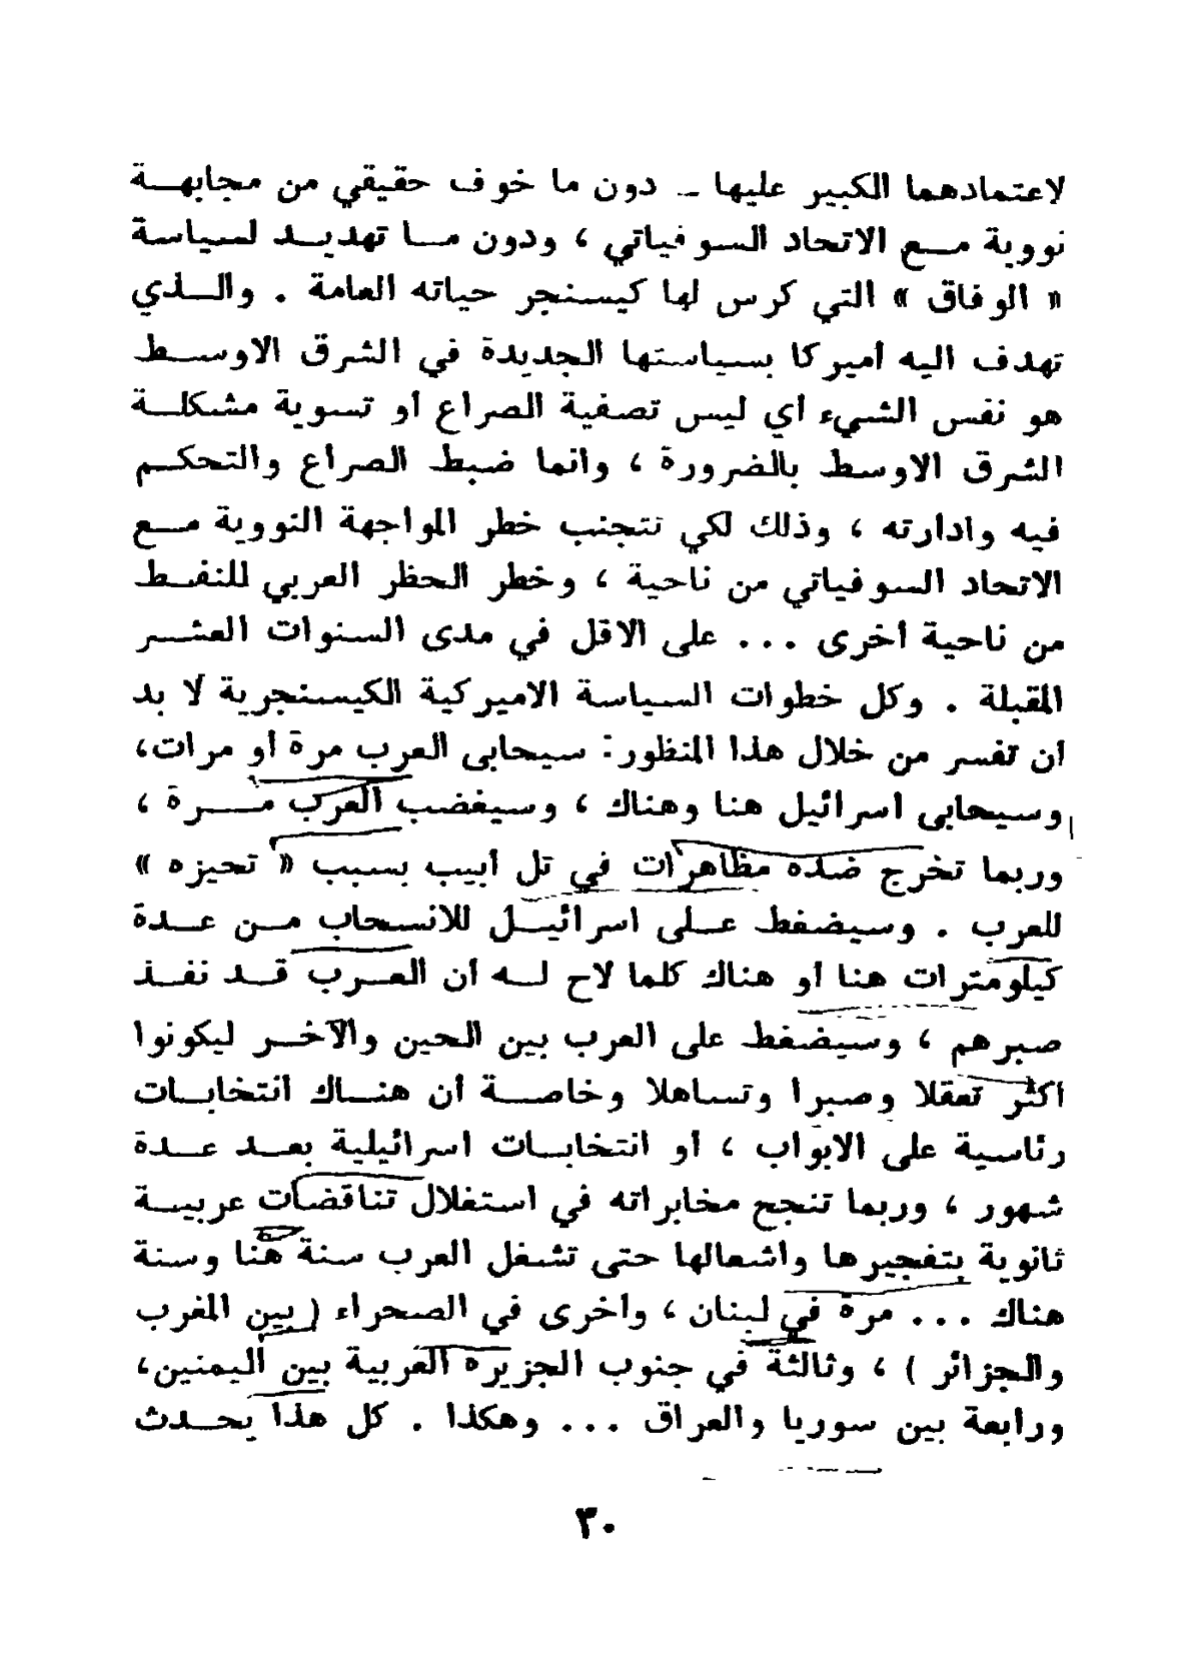 لاعتمادهما الكبير عليها ـ دون ما خوف حقيقي من مجابهـــة
نووية مــع الاتحاد السوفياتي ، ودون مــا تهديــد لسياسة
« الوفاق » التي كرس لها كيسنجر حياته العامة . والــذي
تهدف اليه أميركا بسياستها الجديدة في الشرق الاوســط
هو نفس الشيء أي ليس تصفية الصراع أو تسوية مشكلــة
الشرق الاوسط بالضرورة ، وانما ضبط الصراع والتحكــم
فيه وادارته ، وذلك لكي تتجنب خطر المواجهة النووية مــع
الاتحاد السوفياتي من ناحية ، وخطر الحظر العربي للنفــط
من ناحية أخرى ... على الاقل في مدى السنوات العشــر
المقبلة . وكل خطوات السياسة الاميركية الكيسنجرية لا بد
أن تفسر من خلال هذا المنظور: سيحابى العرب مرة أو مرات،
وسيحابى اسرائيل هنا وهناك ، وسيغضب العرب مـــرة ،
وربما تخرج ضده مظاهرات في تل أبيب بسبب « تحيزه »
للعرب . وسيضغط علــى اسرائيــل للانسحاب مــن عــدة
كيلومترات هنا أو هناك كلما لاح لــه أن العــرب قــد نفــذ
صبرهم ، وسيضغط على العرب بين الحين والآخــر ليكونوا
أكثر تعقلا وصبرا وتساهلا وخاصــة أن هنــاك انتخابــات
رئاسية على الابواب ، أو انتخابــات اسرائيلية بعــد عــدة
شهور ، وربما تنجح مخابراته في استغلال تناقضات عربيــة
ثانوية بتفجيرها واشعالها حتى تشغل العرب سنة هنا وسنة
هناك ... مرة في لبنان ، وأخرى في الصحراء ( بين المغرب
والجزائر ) ، وثالثة في جنوب الجزيرة العربية بين اليمنين،
ورابعة بين سوريا والعراق ... وهكذا . كل هذا يحــدث
٣٠